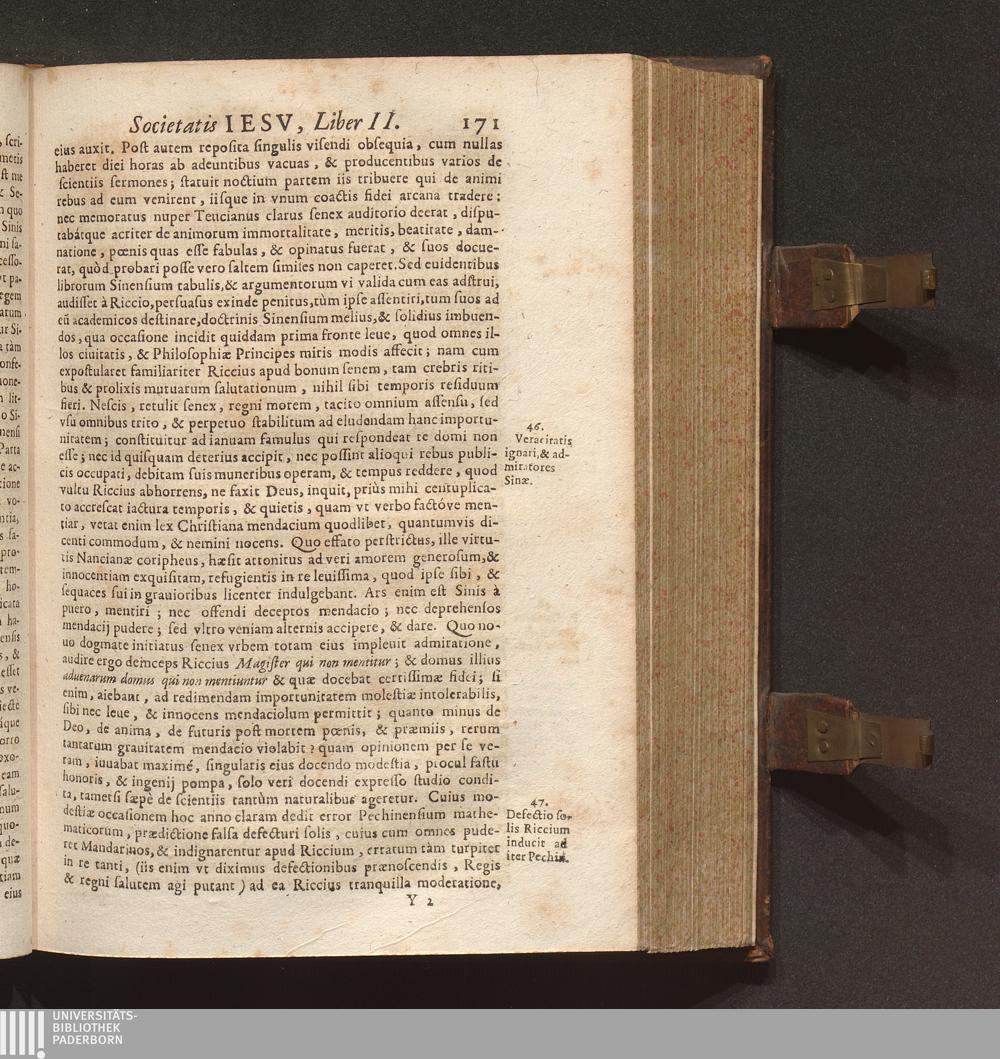 Societatis IESV, Liber II. 171
eius auxit. Post autem reposita singulis visendi obsequia, cum nullas
haberet diei horas ab adeuntibus vacuas, & producentibus varios de
scientiis sermones; statuit noctium partem iis tribuere qui de animi
rebus ad eum venirent, iisque in vnum coactis fidei arcana tradere:
nec memoratus nuper Teucianus clarus senex auditorio deerat, dispu-
tabátque acriter de animorum immortalitate, meritis, beatitate, dam-
natione, pœnis quas esse fabulas, & opinatus fuerat, & suos docue-
rat, quòd probari posse vero saltem similes non caperet. Sed euidentibus
librorum Sinensium tabulis, & argumentorum vi valida cum eas adstrui,
audisset à Riccio, persuasus exinde penitus, tùm ipse assentiri, tum suos ad
eū academicos destinare, doctrinis Sinensium melius, & solidius imbuen-
dos, qua occasione incidit quiddam prima fronte leue, quod omnes il-
los ciuitatis, & Philosophiæ Principes miris modis affecit; nam cum
expostularet familiariter Riccius apud bonum senem, tam crebris riti-
bus & prolixis mutuarum salutationum, nihil sibi temporis residuum
fieri. Nescis, retulit senex, regni morem, tacito omnium assensu, sed
vsu omnibus trito, & perpetuo stabilitum ad eludendam hanc importu-
nitatem; constituitur ad ianuam famulus qui respondeat te domi non
esse; nec id quisquam deterius accipit, nec possint alioqui rebus publi-
cis occupati, debitam suis muneribus operam, & tempus reddere, quod
vultu Riccius abhorrens, ne faxit Deus, inquit, priùs mihi centuplica-
to accrescat iactura temporis, & quietis, quam vt verbo factóve men-
tiar, vetat enim lex Christiana mendacium quodlibet, quantumvis di-
centi commodum, & nemini nocens. Quo effato perstrictus, ille virtu-
tis Nancianæ coripheus, hæsit attonitus ad veri amorem generosum, &
innocentiam exquisitam, refugientis in re leuissima, quod ipse sibi, &
sequaces sui in grauioribus licenter indulgebant. Ars enim est Sinis à
puero, mentiri; nec offendi deceptos mendacio; nec deprehensos
mendacij pudere; sed vltro veniam alternis accipere, & dare. Quo no-
uo dogmate initiatus senex vrbem totam eius impleuit admiratione,
audire ergo deinceps Riccius Magister qui non mentitur; & domus illius
aduenarum domus qui non mentiuntur & quæ docebat certissimæ fidei; si
enim, aiebant, ad redimendam importunitatem molestiæ intolerabilis,
sibi nec leue, & innocens mendaciolum permittit; quanto minus de
Deo, de anima, de futuris post mortem pœnis, & præmiis, rerum
tantarum grauitatem mendacio violabit? quam opinionem per se ve-
ram, iuuabat maximé, singularis eius docendo modestia, procul fastu
honoris, & ingenij pompa, solo veri docendi expresso studio condi-
ta, tametsi sæpè de scientiis tantùm naturalibus ageretur. Cuius mo-
destiæ occasionem hoc anno claram dedit error Pechinensium mathe-
maticorum, prædictione falsa defecturi solis, cuius cum omnes pude-
ret Mandarinos, & indignarentur apud Riccium, erratum tàm turpiter
in re tanti, (iis enim vt diximus defectionibus prænoscendis, Regis
& regni salutem agi putant) ad ea Riccius tranquilla moderatione,
Y 2
46.
Veracitatis
ignari, & ad-
miratores
Sinæ.
47.
Defectio so-
lis Riccium
inducit ad
iter Pechin.
UNIVERSITÄTS-
BIBLIOTHEK
PADERBORN